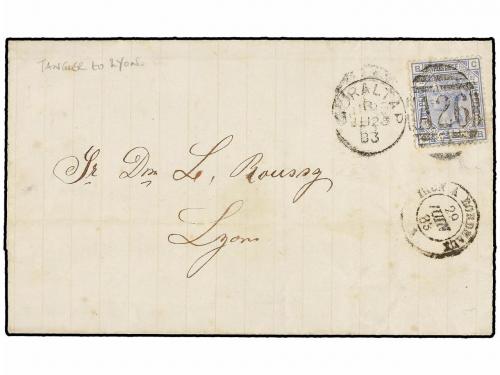 TANGIER to LYON.
GIBRALTAR
83
A26
Sr Dn L. Roussy
Lyon
IRUN A BORDEAUX
29
JUIN
83